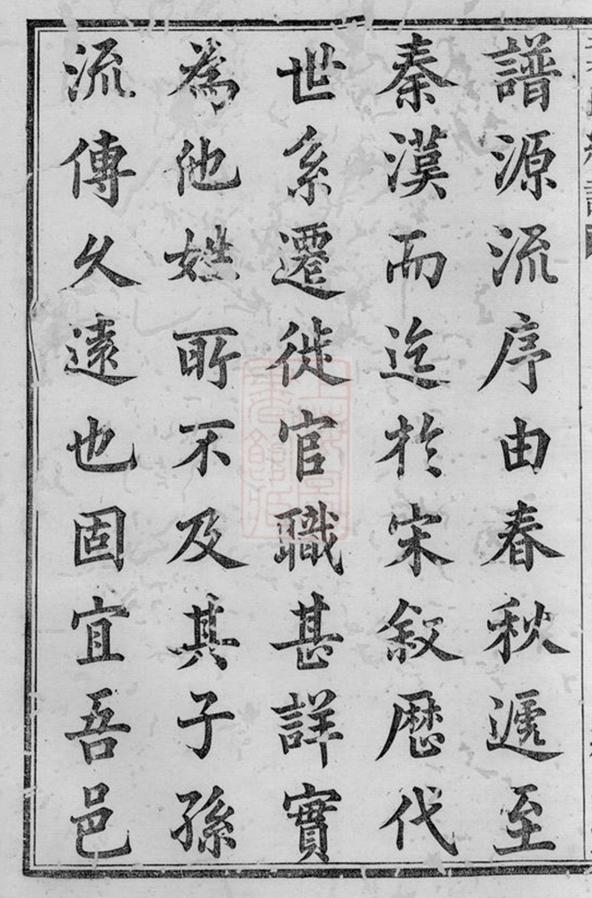 譜源流序由春秋遞至
秦漢而迄於宋叙歷代
世系遷徙官職甚詳實
為他姓所不及其子孫
流傳久遠也固宜吾邑